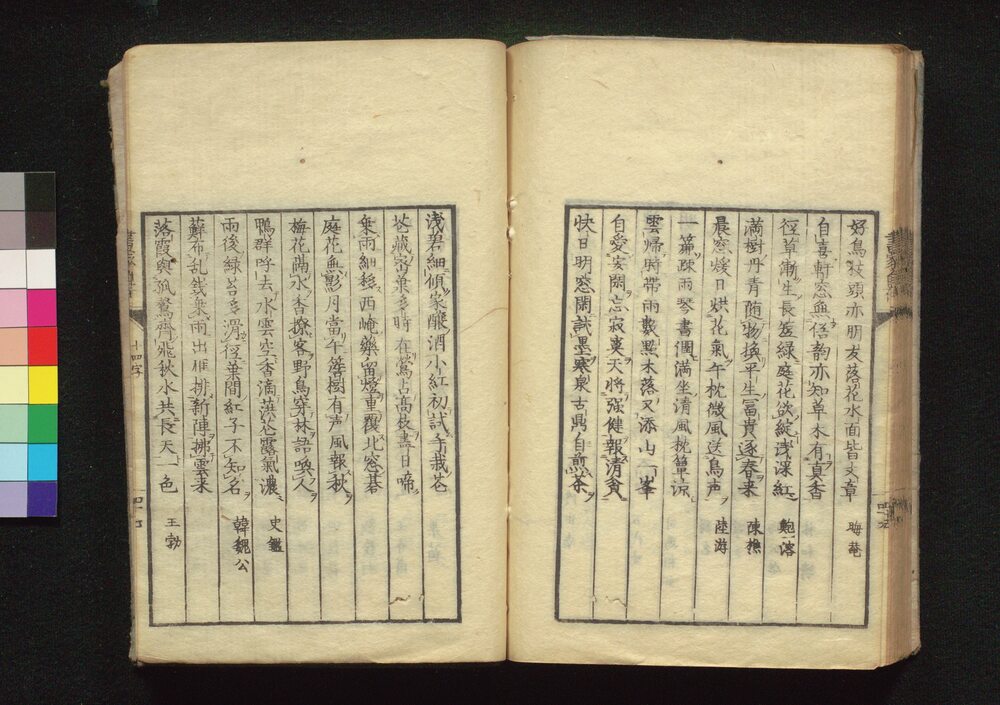 好鳥枝頭亦朋友落花水面皆文章 晦菴
自喜軒窓無俗韵亦知草木有真香
径草漸生長短緑庭花欲綻浅深紅 鮑溶
満樹丹青随物換平生冨貴逐春来 陳樵
晨窓煖日烘花氣午枕微風送鳥声 陸游
一簾疎雨琴書潤満坐清風枕簟涼
雲帰時帯雨數點木落又添山一峯
自愛安閑忘寂寞天将强健報清貧
快日明窓閑試墨寒泉古鼎自煎茶
浅碧細傾家釀酒小紅初試手栽花
花藏密葉多時在鶯占高枝盡日啼
乗雨細移西崦藥留燈重覆北窓碁
庭花無影月當午簷樹有声風報秋
梅花隔水香撩客野鳥穿林語喚人
鴨群呼去水雲空香滴洪花露氣濃 史鑑
雨後緑苔多滑径葉間紅子不知名 韓魏公
蘚布乱錢乗雨出雁排新陣拂雲来
落霞與孤鶩齊飛秋水共長天一色 王勃